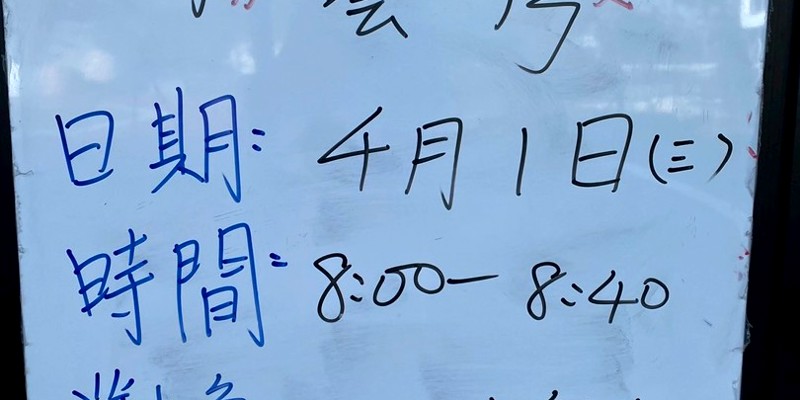 日期: 4月1日(三)
時間: 8:00-8:40